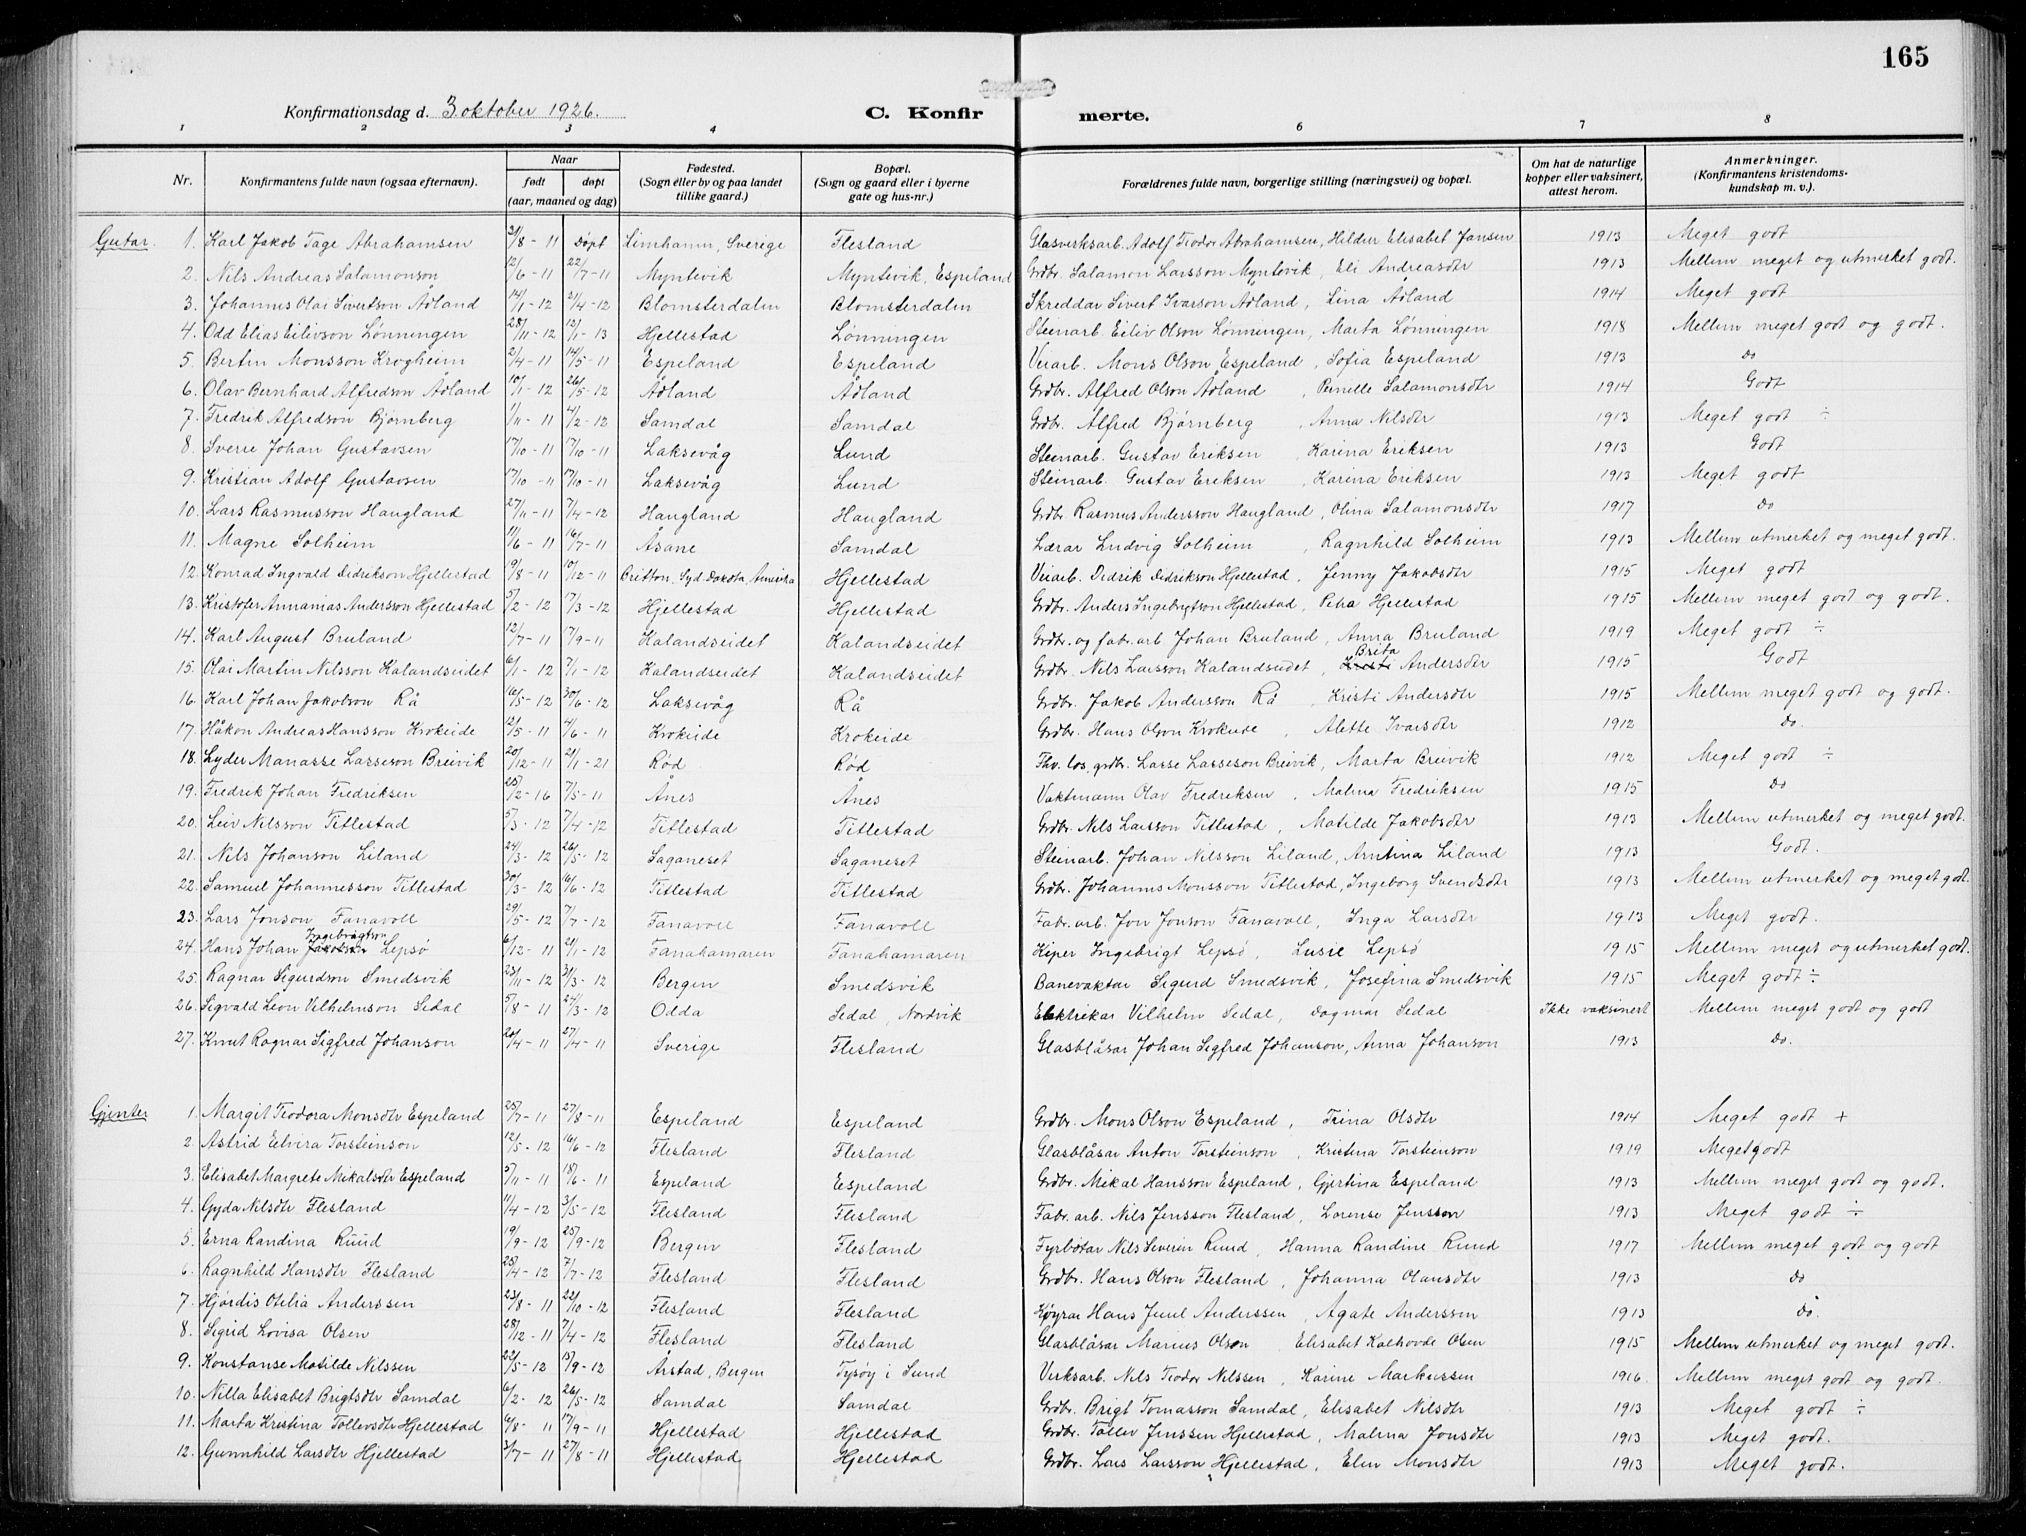 165
Konfirmationsdag d. 3 oktober 1926.
C. Konfirmerte.
1 2 3 4 5 6 7 8
Nr. | Konfirmantens fulde navn (ogsaa efternavn). | Naar født | døpt (aar, maaned og dag) | Fødested. (Sogn eller by og paa landet tillike gaard.) | Bopæl. (Sogn og gaard eller i byerne gate og hus-nr.) | Forældrenes fulde navn, borgerlige stilling (næringsvei) og bopæl. | Om hat de naturlige kopper eller vaksinert, attest herom. | Anmerkninger. (Konfirmantens kristendomskundskap m. v.)
Gutar.
1. Karl Jakob Tage Abrahamsen 21/8-11 Døpt Limhamn, Sverige Flesland Glasverksarb. Adolf Teodor Abrahamsen, Hilder Elisabet Jansen 1913 Meget godt
2. Nils Andreas Salamonson 12/6-11 22/7-11 Myntevik Myntevik, Espeland Grdbr. Salamon Larsson Myntevik, Eli Andreasdtr 1913 Mellem meget og utmerket godt.
3. Johannes Olai Sivertson Ådland 14/1-12 21/4-12 Blomsterdalen Blomsterdalen Skreddar Sivert Ivarson Ådland, Lina Ådland 1914 Meget godt
4. Odd Elias Eilivson Lønningen 28/11-12 12/1-13 Hjellestad Lønningen Steinarb. Eiliv Olson Lønningen, Marta Lønningen 1918 Mellem meget godt og godt.
5. Bertin Monsson Krogheim 21/4-11 14/5-11 Espeland Espeland Veiarb. Mons Olson Espeland, Sofia Espeland 1913 do
6. Olav Bernhard Alfredson Ådland 10/1-12 26/5-12 Ådland Ådland Grdbr. Alfred Olson Ådland, Pernille Salamonsdtr 1914 Godt
7. Fredrik Alfredson Bjørnberg 1/11-11 4/2-12 Samdal Samdal Grdbr. Alfred Bjørnberg, Anna Nilsdtr 1913 Meget godt ÷
8. Sverre Johan Gustavsen 17/10-11 17/10-11 Laksevåg Lund Steinarb. Gustav Eriksen, Karina Eriksen 1913 Godt
9. Kristian Adolf Gustavsen 17/10-11 17/10-11 Laksevåg Lund Steinarb. Gustav Eriksen, Karina Eriksen 1913 Meget godt
10. Lars Rasmusson Haugland 27/11-11 7/4-12 Haugland Haugland Grdbr. Rasmus Andersson Haugland, Olina Salamonsdtr 1917 do
11. Magne Solheim 11/6-11 16/7-11 Åsane Samdal Lærar Ludvig Solheim, Ragnhild Solheim 1913 Mellem utmerket og meget godt.
12. Konrad Ingvald Didrikson Hjellestad 19/8-11 10/12-11 Britton, Syd Dakota, Amerika Hjellestad Veiarb. Didrik Didrikson Hjellestad, Jenny Jakobsdtr 1915 Meget godt
13. Kristofer Annanias Andersson Hjellestad 5/2-12 17/3-12 Hjellestad Hjellestad Grdbr. Anders Ingebrigtson Hjellestad, Petra Hjellestad 1915 Mellem meget godt og godt.
14. Karl August Bruland 12/7-11 17/9-11 Kalandseidet Kalandseidet Grdbr. og fabr. arb Johan Bruland, Anna Bruland 1919 Meget godt ÷
15. Olai Martin Nilsson Kalandseidet 6/1-12 7/1-12 Kalandseidet Kalandseidet Grdbr. Nils Larsson Kalandseidet, Kristi Brita Andersdtr 1915 Godt
16. Karl Johan Jakobson Rå 16/5-12 30/6-12 Laksevåg Rå Grdbr. Jakob Andersson Rå, Kristi Andersdtr 1915 Mellem meget godt og godt.
17. Håkon Andreas Hansson Krokeide 12/5-11 4/6-11 Krokeide Krokeide Grdbr. Hans Olson Krokeide, Alette Ivarsdtr 1912 do.
18. Lyder Manasse Lasseson Breivik 20/12-11 21/1-21 Rød Rød Fhv. los, grdbr. Lasse Lasseson Breivik, Marta Breivik 1912 Meget godt ÷
19. Fredrik Johan Fredriksen 25/2-16 7/5-11 Ånes Ånes Vaktmann Olav Fredriksen, Malena Fredriksen 1915 do
20. Leiv Nilsson Titlestad 5/3-12 7/4-12 Titlestad Titlestad Grdbr. Nils Larsson Titlestad, Matilde Jakobsdtr 1913 Mellem utmerket og meget godt.
21. Nils Johanson Liland 24/3-12 26/5-12 Saganeset Saganeset Steinarb. Johan Nilsson Liland, Arntina Liland 1913 Godt.
22. Samuel Johannesson Titlestad 30/3-12 16/6-12 Titlestad Titlestad Grdbr. Johannes Monsson Titlestad, Ingeborg Svendsdtr 1913 Mellem utmerket og meget godt.
23. Lars Jonson Fanavoll 29/5-12 7/7-12 Fanavoll Fanavoll Fabr. arb. Jon Jonson Fanavoll, Inga Larsdtr 1913 Meget godt.
24. Hans Johan Jakobsen Ingebrigtson Lepsø 6/12-11 21/1-12 Fanahamaren Fanahamaren Kiper Ingebrigt Lepsø, Lusie Lepsø 1915 Mellem meget og utmerket godt.
25. Ragnar Sigurdson Smedsvik 23/11-12 31/3-12 Bergen Smedsvik Banevaktar Sigurd Smedsvik, Josefina Smedsvik 1915 Meget godt ÷
26. Sigvald Leon Vilhelmson Sedal 5/8-11 24/3-12 Odda Sedal, Nordvik Elektrikar Vilhelm Sedal, Dagmar Sedal Ikke vaksinert Mellem meget godt og godt
27. Knut Ragnar Sigfred Johanson 20/4-11 27/4-11 Sverige Flesland Glasblåsar Johan Sigfred Johanson, Anna Johanson 1913 do.
Gjenter
1. Margit Teodora Monsdtr Espeland 25/7-11 27/8-11 Espeland Espeland Grdbr. Mons Olson Espeland, Trina Olsdtr 1914 Meget godt +
2. Astrid Elvira Torsteinson 12/5-12 16/6-12 Flesland Flesland Glasblåsar Anton Torsteinson, Kristina Torsteinson 1919 Meget godt
3. Elisabet Margrete Mikalsdtr Espeland 5/11-11 18/6-11 Espeland Espeland Grdbr. Mikal Hansson Espeland, Gjertina Espeland 1913 Mellem meget godt og godt.
4. Gyda Nilsdtr Flesland 11/4-12 3/5-12 Flesland Flesland Fabr. arb. Nils Jensson Flesland, Lorense Jensson 1913 Meget godt ÷
5. Erna Randina Ruud 19/9-12 25/9-12 Bergen Flesland Fyrbøtar Nils Severin Ruud, Hanna Randine Ruud 1917 Mellem meget godt og godt
6. Ragnhild Hansdtr Flesland 25/4-12 7/7-12 Flesland Flesland Grdbr. Hans Olson Flesland, Johanna Olausdtr 1913 do
7. Hjørdis Otelia Anderssen 23/8-11 22/10-12 Flesland Flesland Køyrar Hans Juul Anderssen, Agate Anderssen 1913 do.
8. Sigrid Lovisa Olsen 28/12-11 7/4-12 Flesland Flesland Glasblåsar Marius Olson Elisabet Kalhovde Olsen 1915 Mellem utmerket og meget godt.
9. Konstanse Matilde Nilssen 22/5-12 15/9-12 Årstad, Bergen Tysøy i Sund Verksarb. Nils Teodor Nilssen, Karine Markussen 1916 Mellem meget godt og godt.
10. Nilla Elisabet Brigtsdtr Samdal 6/2-12 26/5-12 Samdal Samdal Grdbr. Brigt Tomasson Samdal, Elisabet Nilsdtr 1913 Meget godt ÷
11. Marta Kristina Tollevsdtr Hjellestad 6/8-11 17/9-11 Hjellestad Hjellestad Grdbr. Tollev Jenssen Hjellestad, Malena Jonsdtr 1913 Meget godt.
12. Gunnhild Larsdtr Hjellestad 31/7-11 27/8-11 Hjellestad Hjellestad Grdbr. Lars Larsson Hjellestad, Elen Monsdtr 1913 Meget godt.